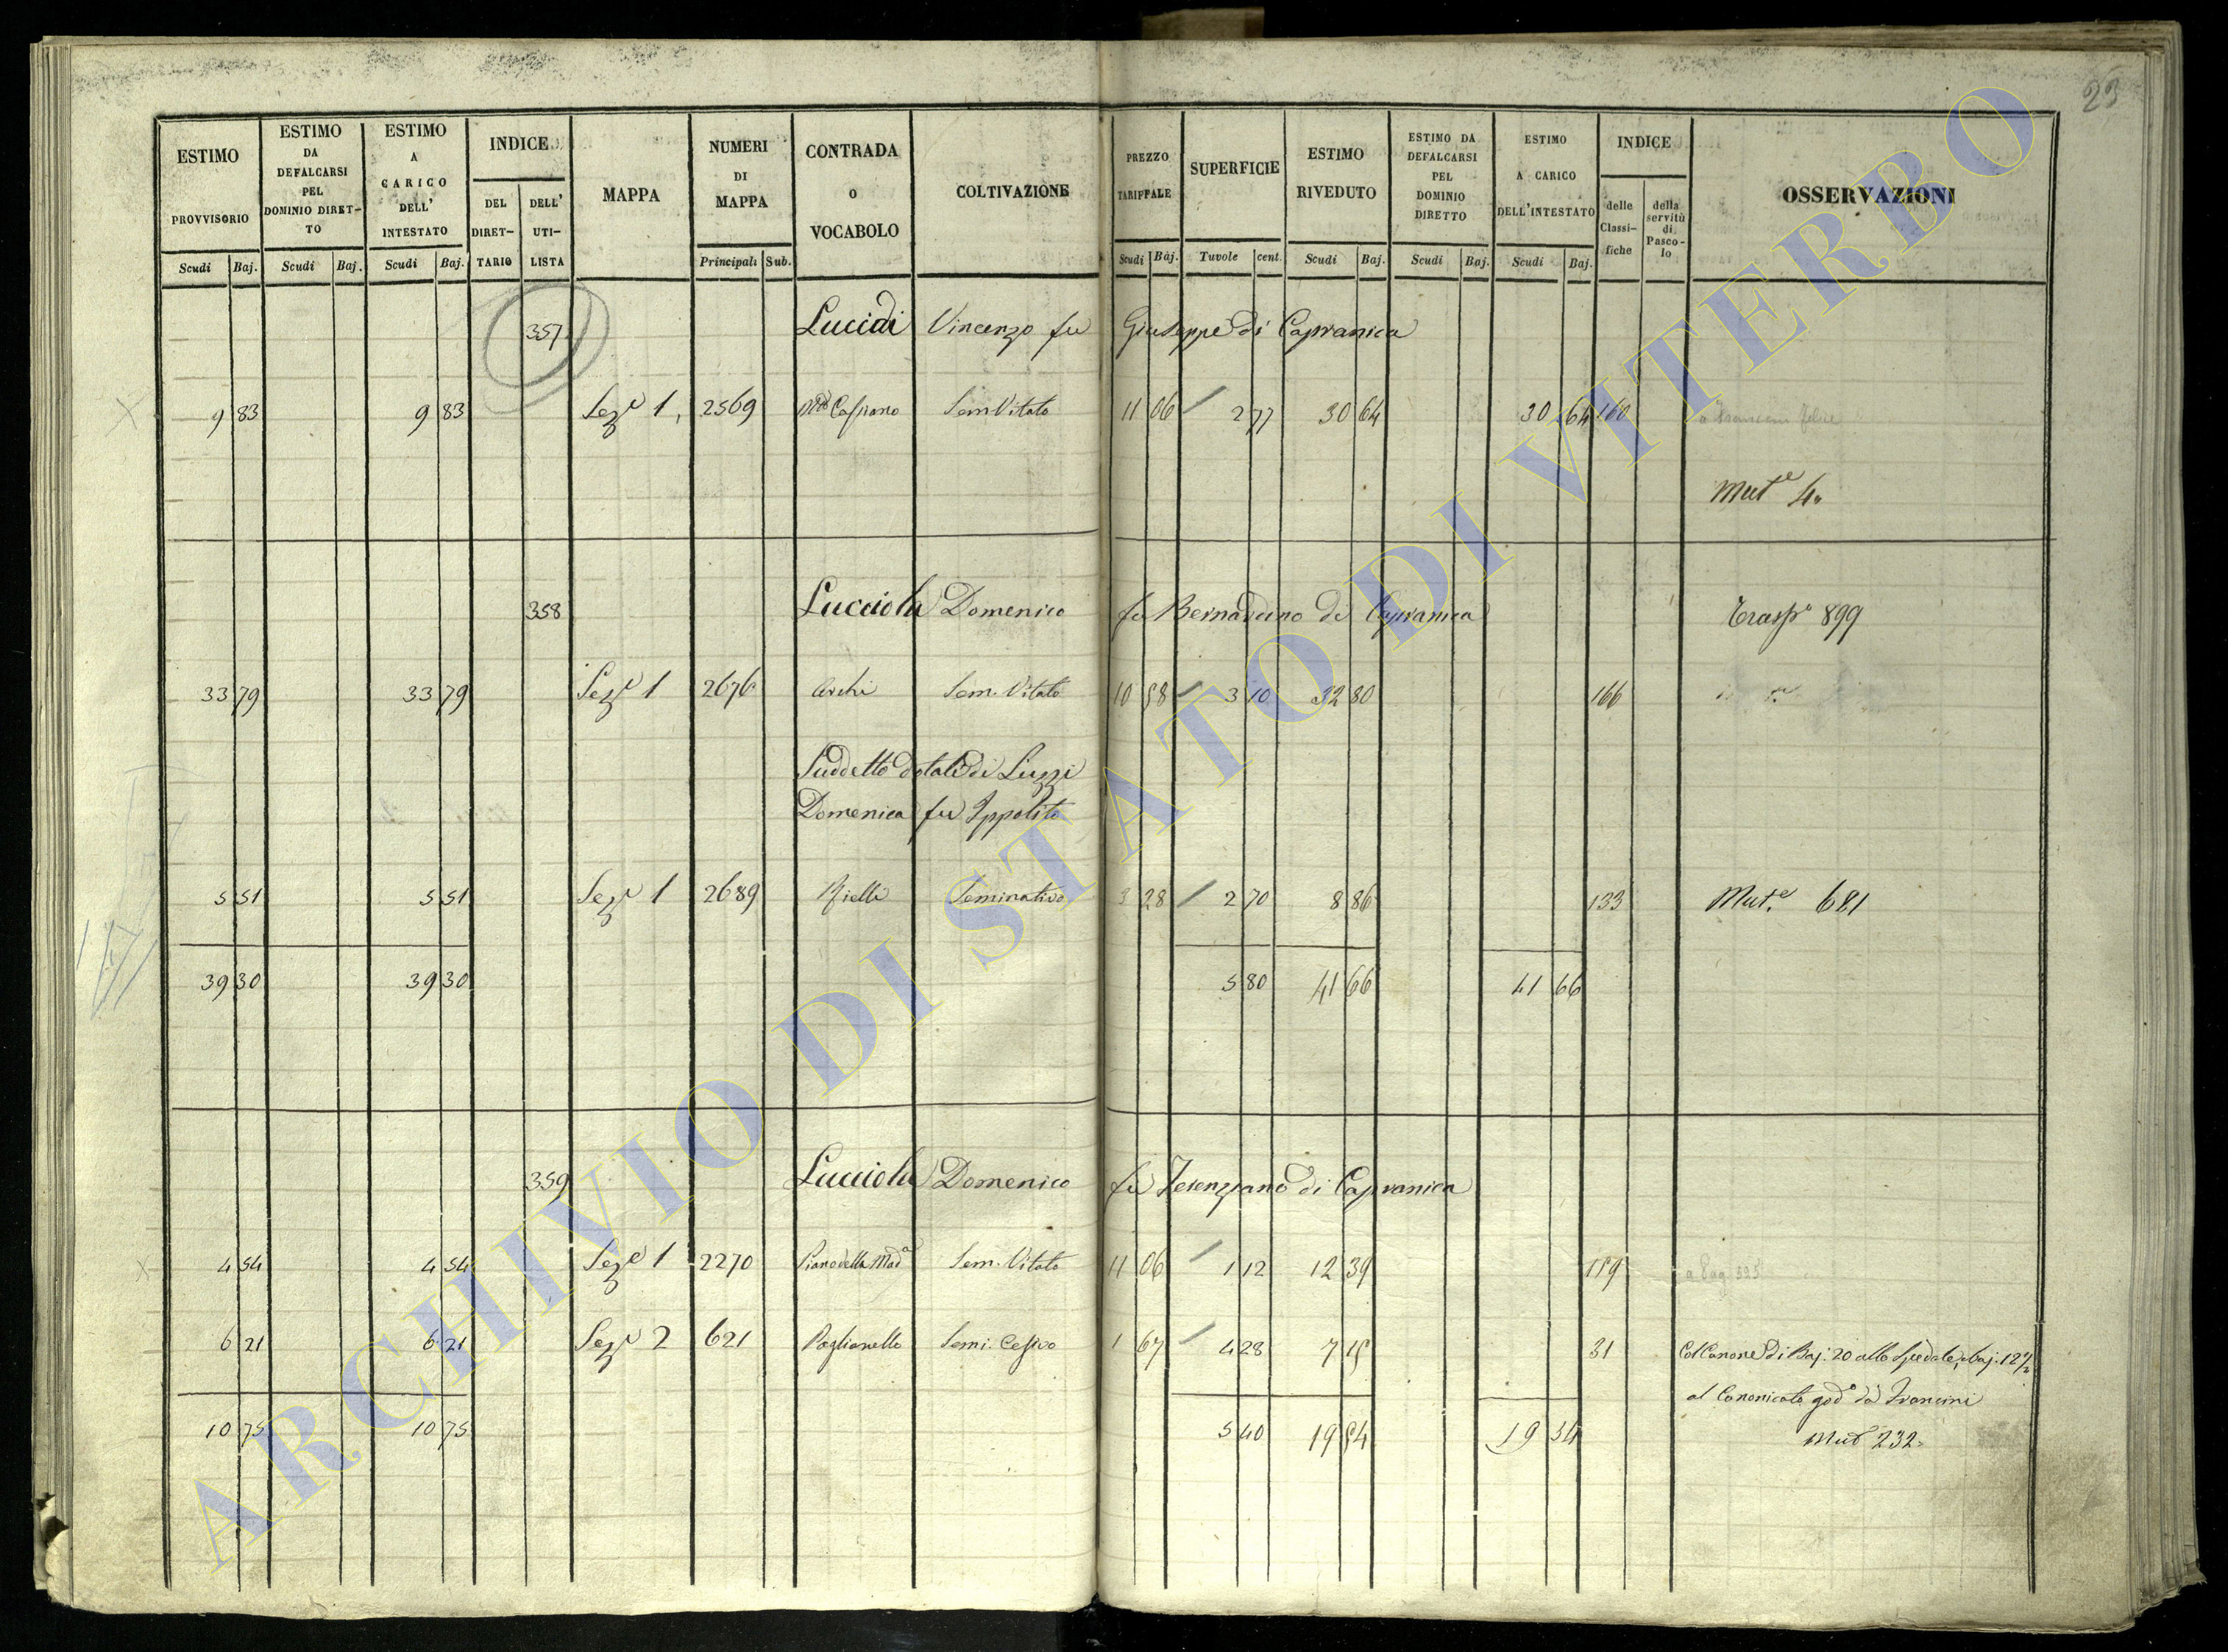 23
ESTIMO PROVVISORIO
ESTIMO DA DEFALCARSI PEL DOMINIO DIRET-TO
ESTIMO A CARICO DELL' INTESTATO
INDICE
DEL DIRET-TARIO
DELL' UTI-LISTA
MAPPA
NUMERI DI MAPPA
CONTRADA O VOCABOLO
COLTIVAZIONE
PREZZO TARIFFALE
SUPERFICIE
ESTIMO RIVEDUTO
ESTIMO DA DEFALCARSI PEL DOMINIO DIRETTO
ESTIMO A CARICO DELL'INTESTATO
INDICE
delle Classi-fiche
della servitù di Pasco-lo
OSSERVAZIONI
Scudi Baj. Scudi Baj. Scudi Baj. Principali Sub. Scudi Baj. Tavole cent. Scudi Baj. Scudi Baj. Scudi Baj.
357 Lucidi Vincenzo fu Giuseppe di Capranica
9 83 9 83 Sez.e 1, 2569 Sem Vitato 11 06 2 77 30 64 30 64 160
Mut.e 4.
358 Lucciola Domenico fu Bernardino di Capranica Trasp.o 899
33 79 33 79 Sez.e 1 2676 Archi Sem. Vitato 10 58 3 10 32 80 166
Suddetto dotali di Luzzi
Domenica fu Ippolito
5 51 5 51 Sez.e 1 2689 Rielli Seminativo 3 28 2 70 8 86 133 Mut.e 681
39 30 39 30 5 80 41 66 41 66
359 Lucciola Domenico fu Terenziano di Capranica
4 54 4 54 Sez.e 1 2270 Piano della Mad.a Sem. Vitato 11 06 1 12 12 39 159
6 21 6 21 Sez.e 2 621 Poglianello Semi. Cesivo 1 67 4 28 7 15 31 Col Canone di Baj. 20 allo Spedale, e baj. 12½
al Canonicato god.o da Francini
10 75 10 75 5 40 19 54 19 54 Mut 232.
ARCHIVIO DI STATO DI VITERBO